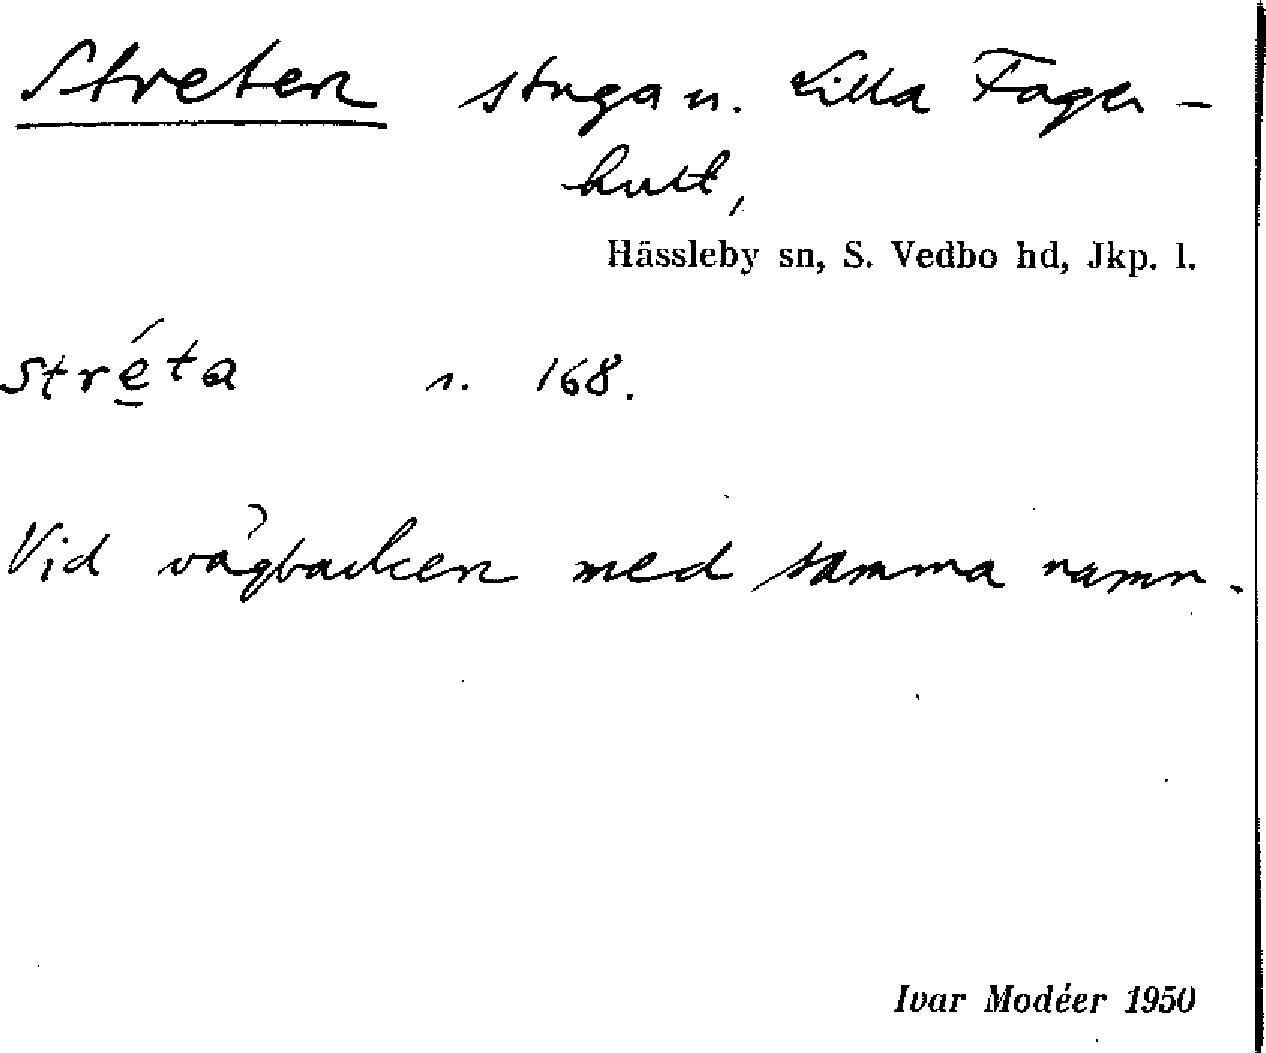 Streten stuga u. Lilla Fager-
hult,
Hässleby sn, S. Vedbo hd, Jkp. l.
stré̱ta s. 168.
Vid vägbacken med samma namn.
Ivar Modéer 1950